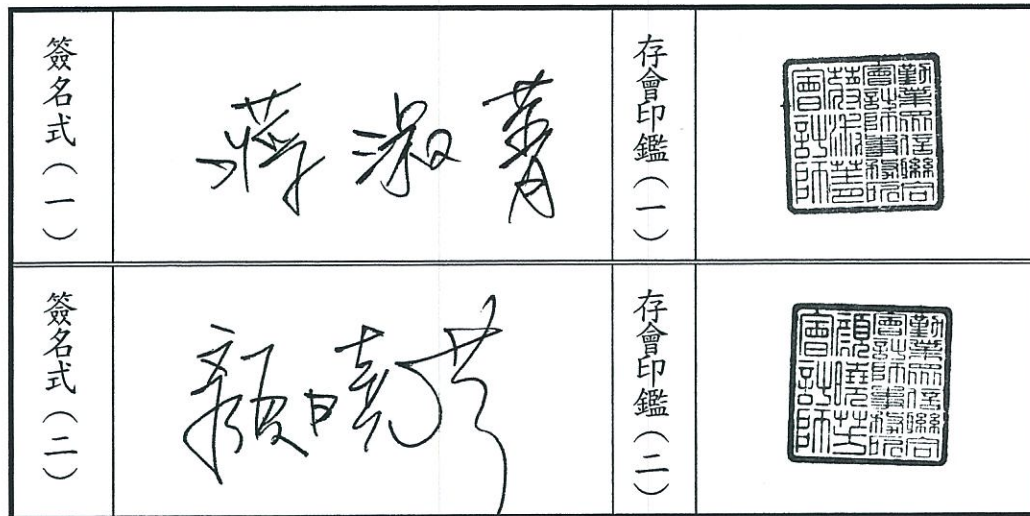 簽名式（一）
蔣淑菁
存會印鑑（一）
勤業眾信聯合
會計師事務所
蔣淑菁
會計師
簽名式（二）
顏曉芳
存會印鑑（二）
勤業眾信聯合
會計師事務所
顏曉芳
會計師